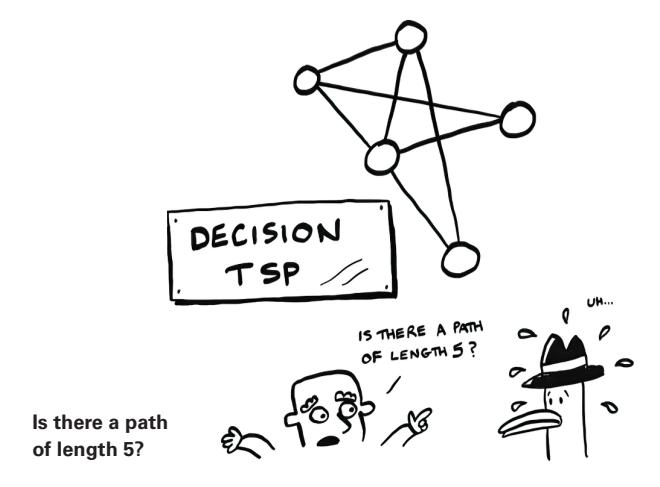 DECISION
TSP
UH...
IS THERE A PATH
OF LENGTH 5?
Is there a path
of length 5?